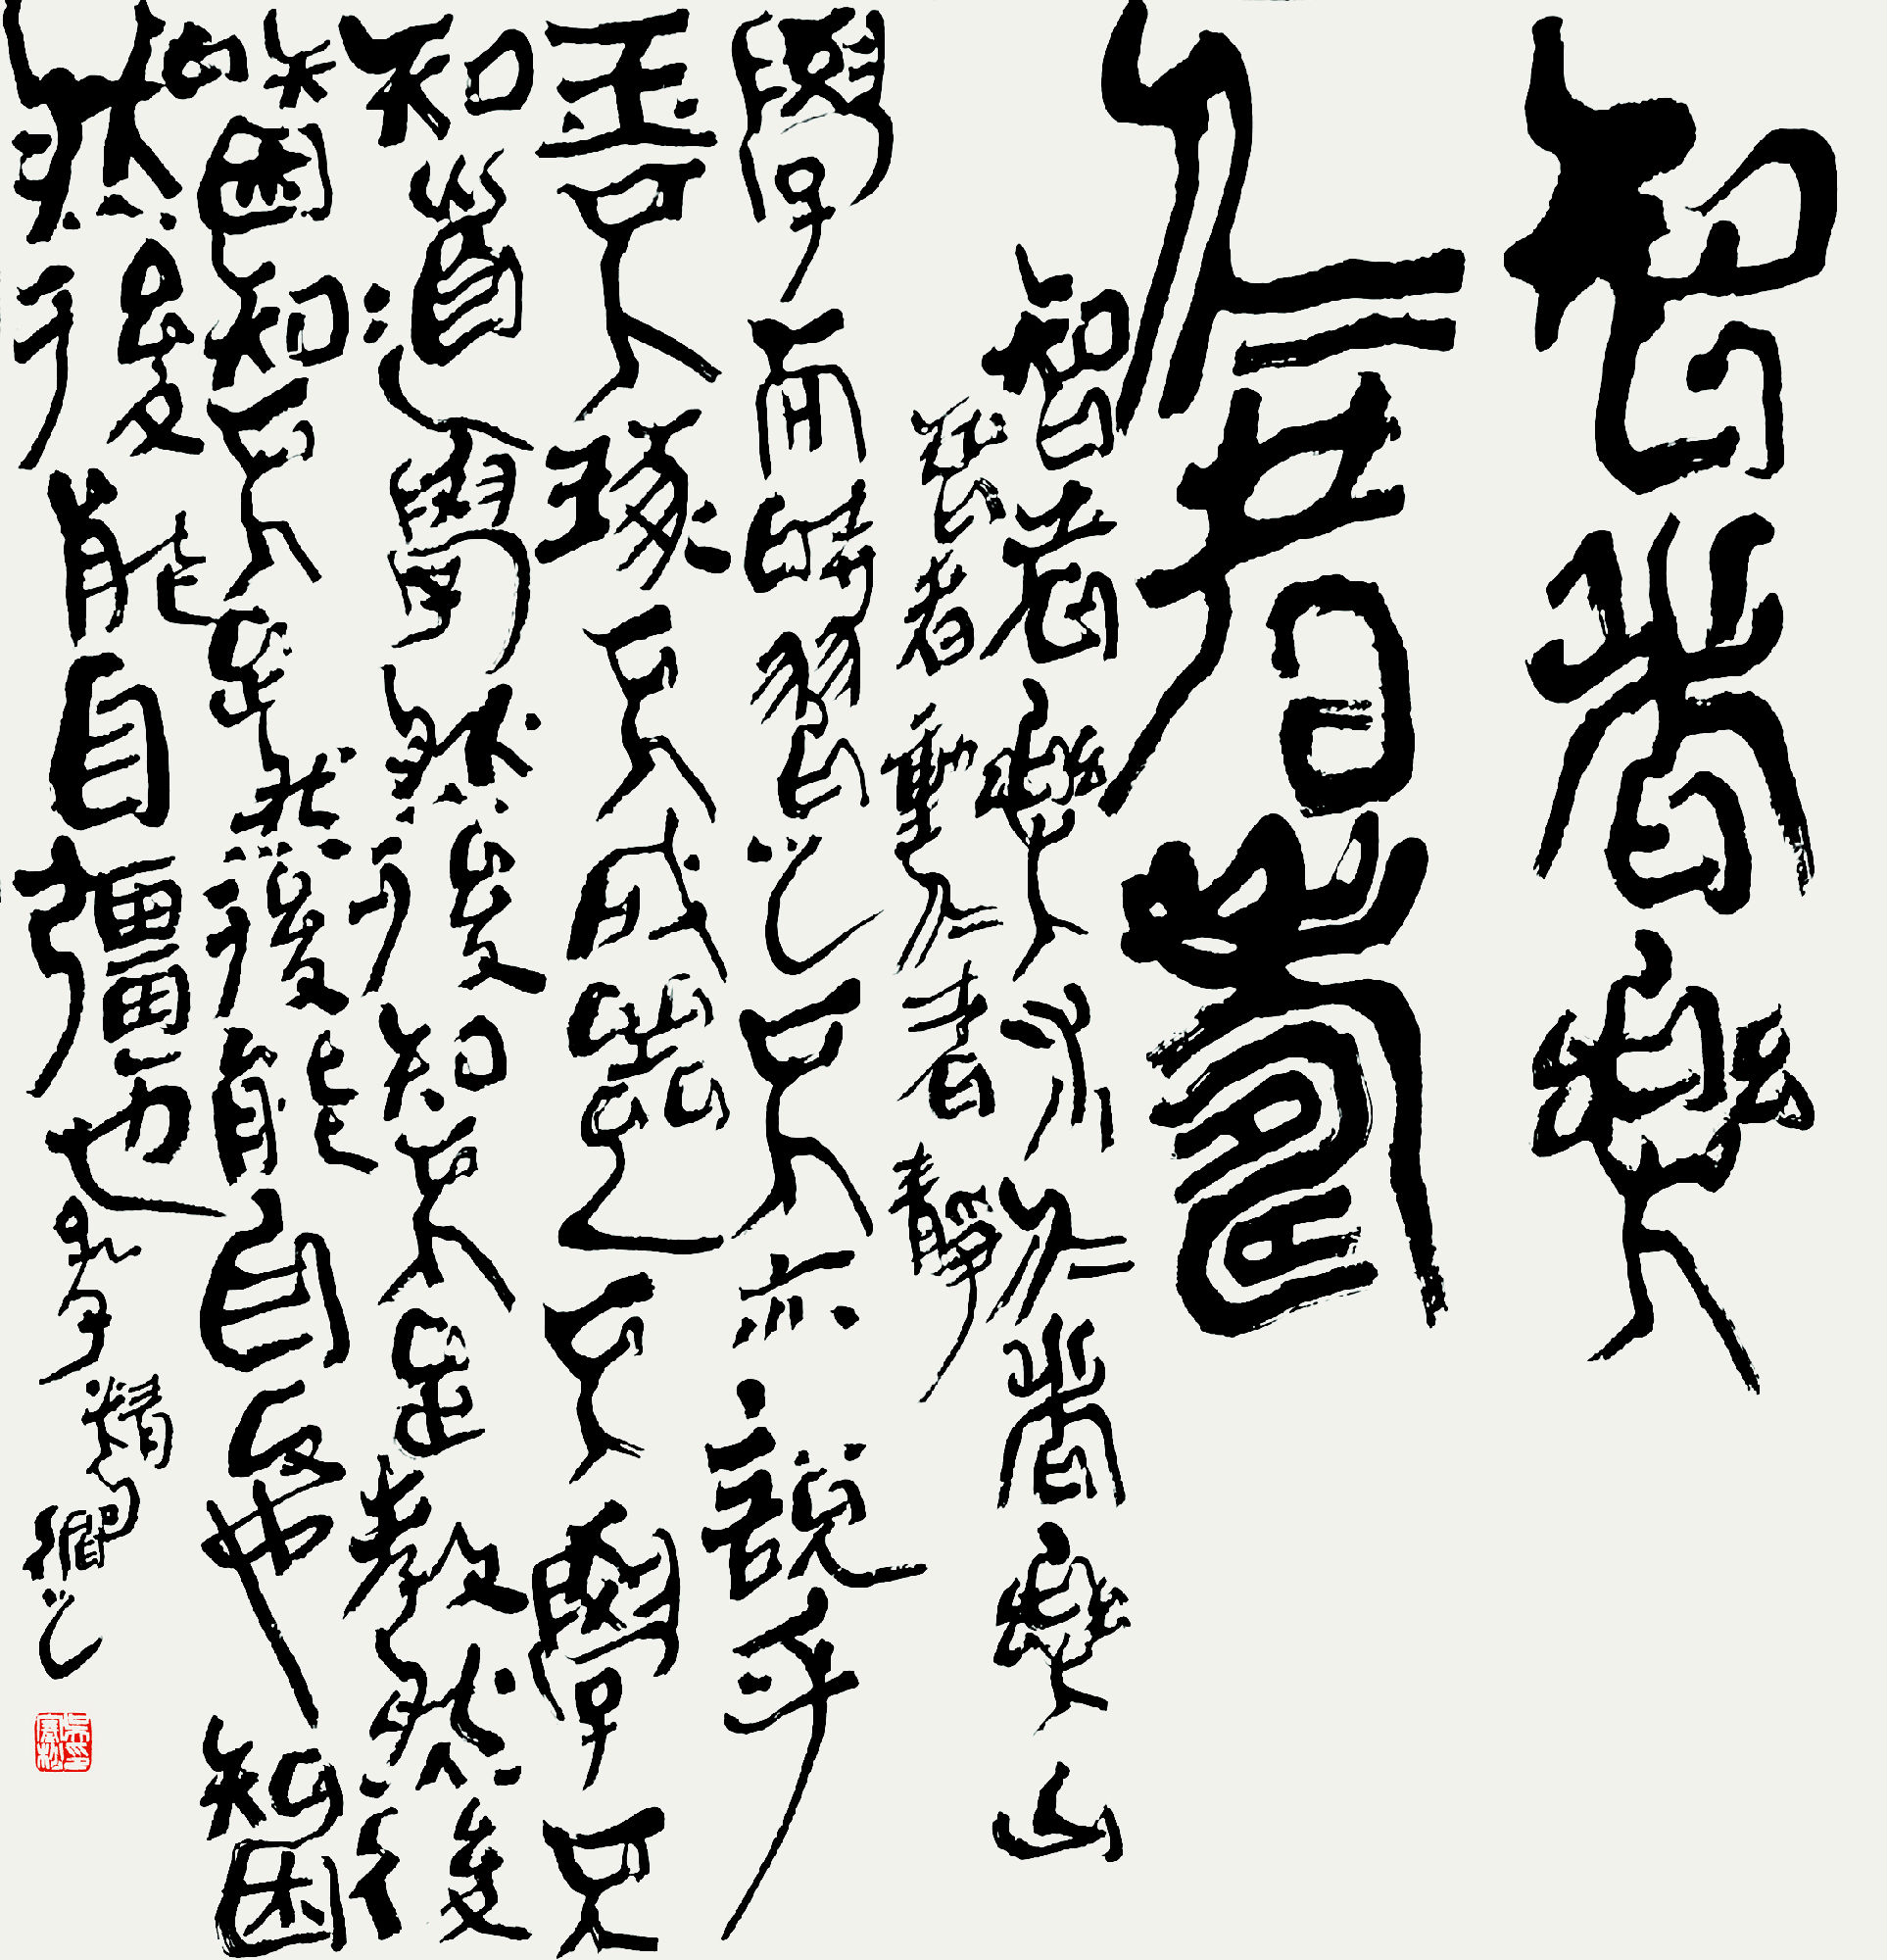 智者樂
仁者壽
智者樂水仁者樂山
智者動仁者靜
學而時習之不亦說乎
玉不琢不成器人不學不
知道學然後知不足教然後
知困知不足然後能自反也知困
然後能自彊也